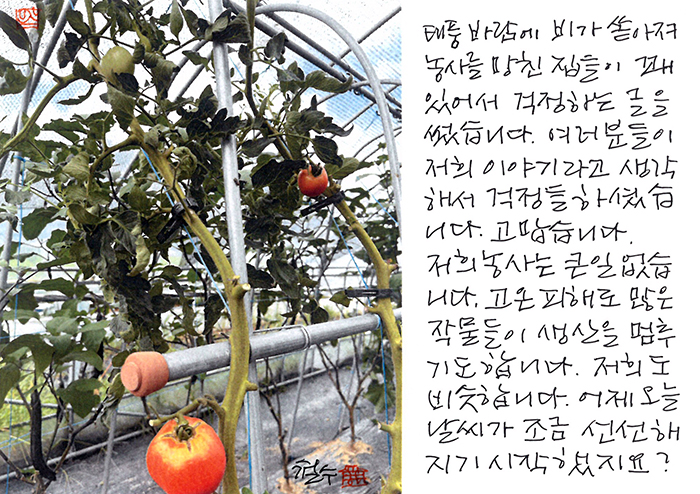 태풍 바람에 비가 쏟아져
농사를 망친 집들이 꽤
있어서 걱정하는 글을
썼습니다. 여러분들이
저희 이야기라고 생각
해서 걱정들하셨습
니다. 고맙습니다.
저희농사는 큰일 없습
니다. 고온 피해로 많은
작물들이 생산을 멈추
기도 합니다. 저희도
비슷합니다. 어제 오늘
날씨가 조금 선선해
지기 시작했지요?
철수